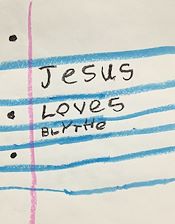 Jesus
Loves
BLYTHe